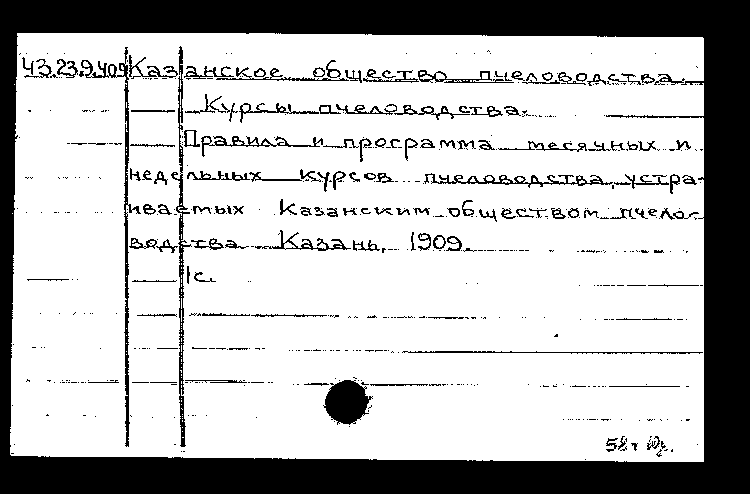 43.23.9.409 Казанское общество пчеловодства.
Курсы пчеловодства.
Правила и программа месячных и
недельных курсов пчеловодства, устра-
иваемых Казанским обществом пчело-
водства. Казань, 1909.
1с.
58г